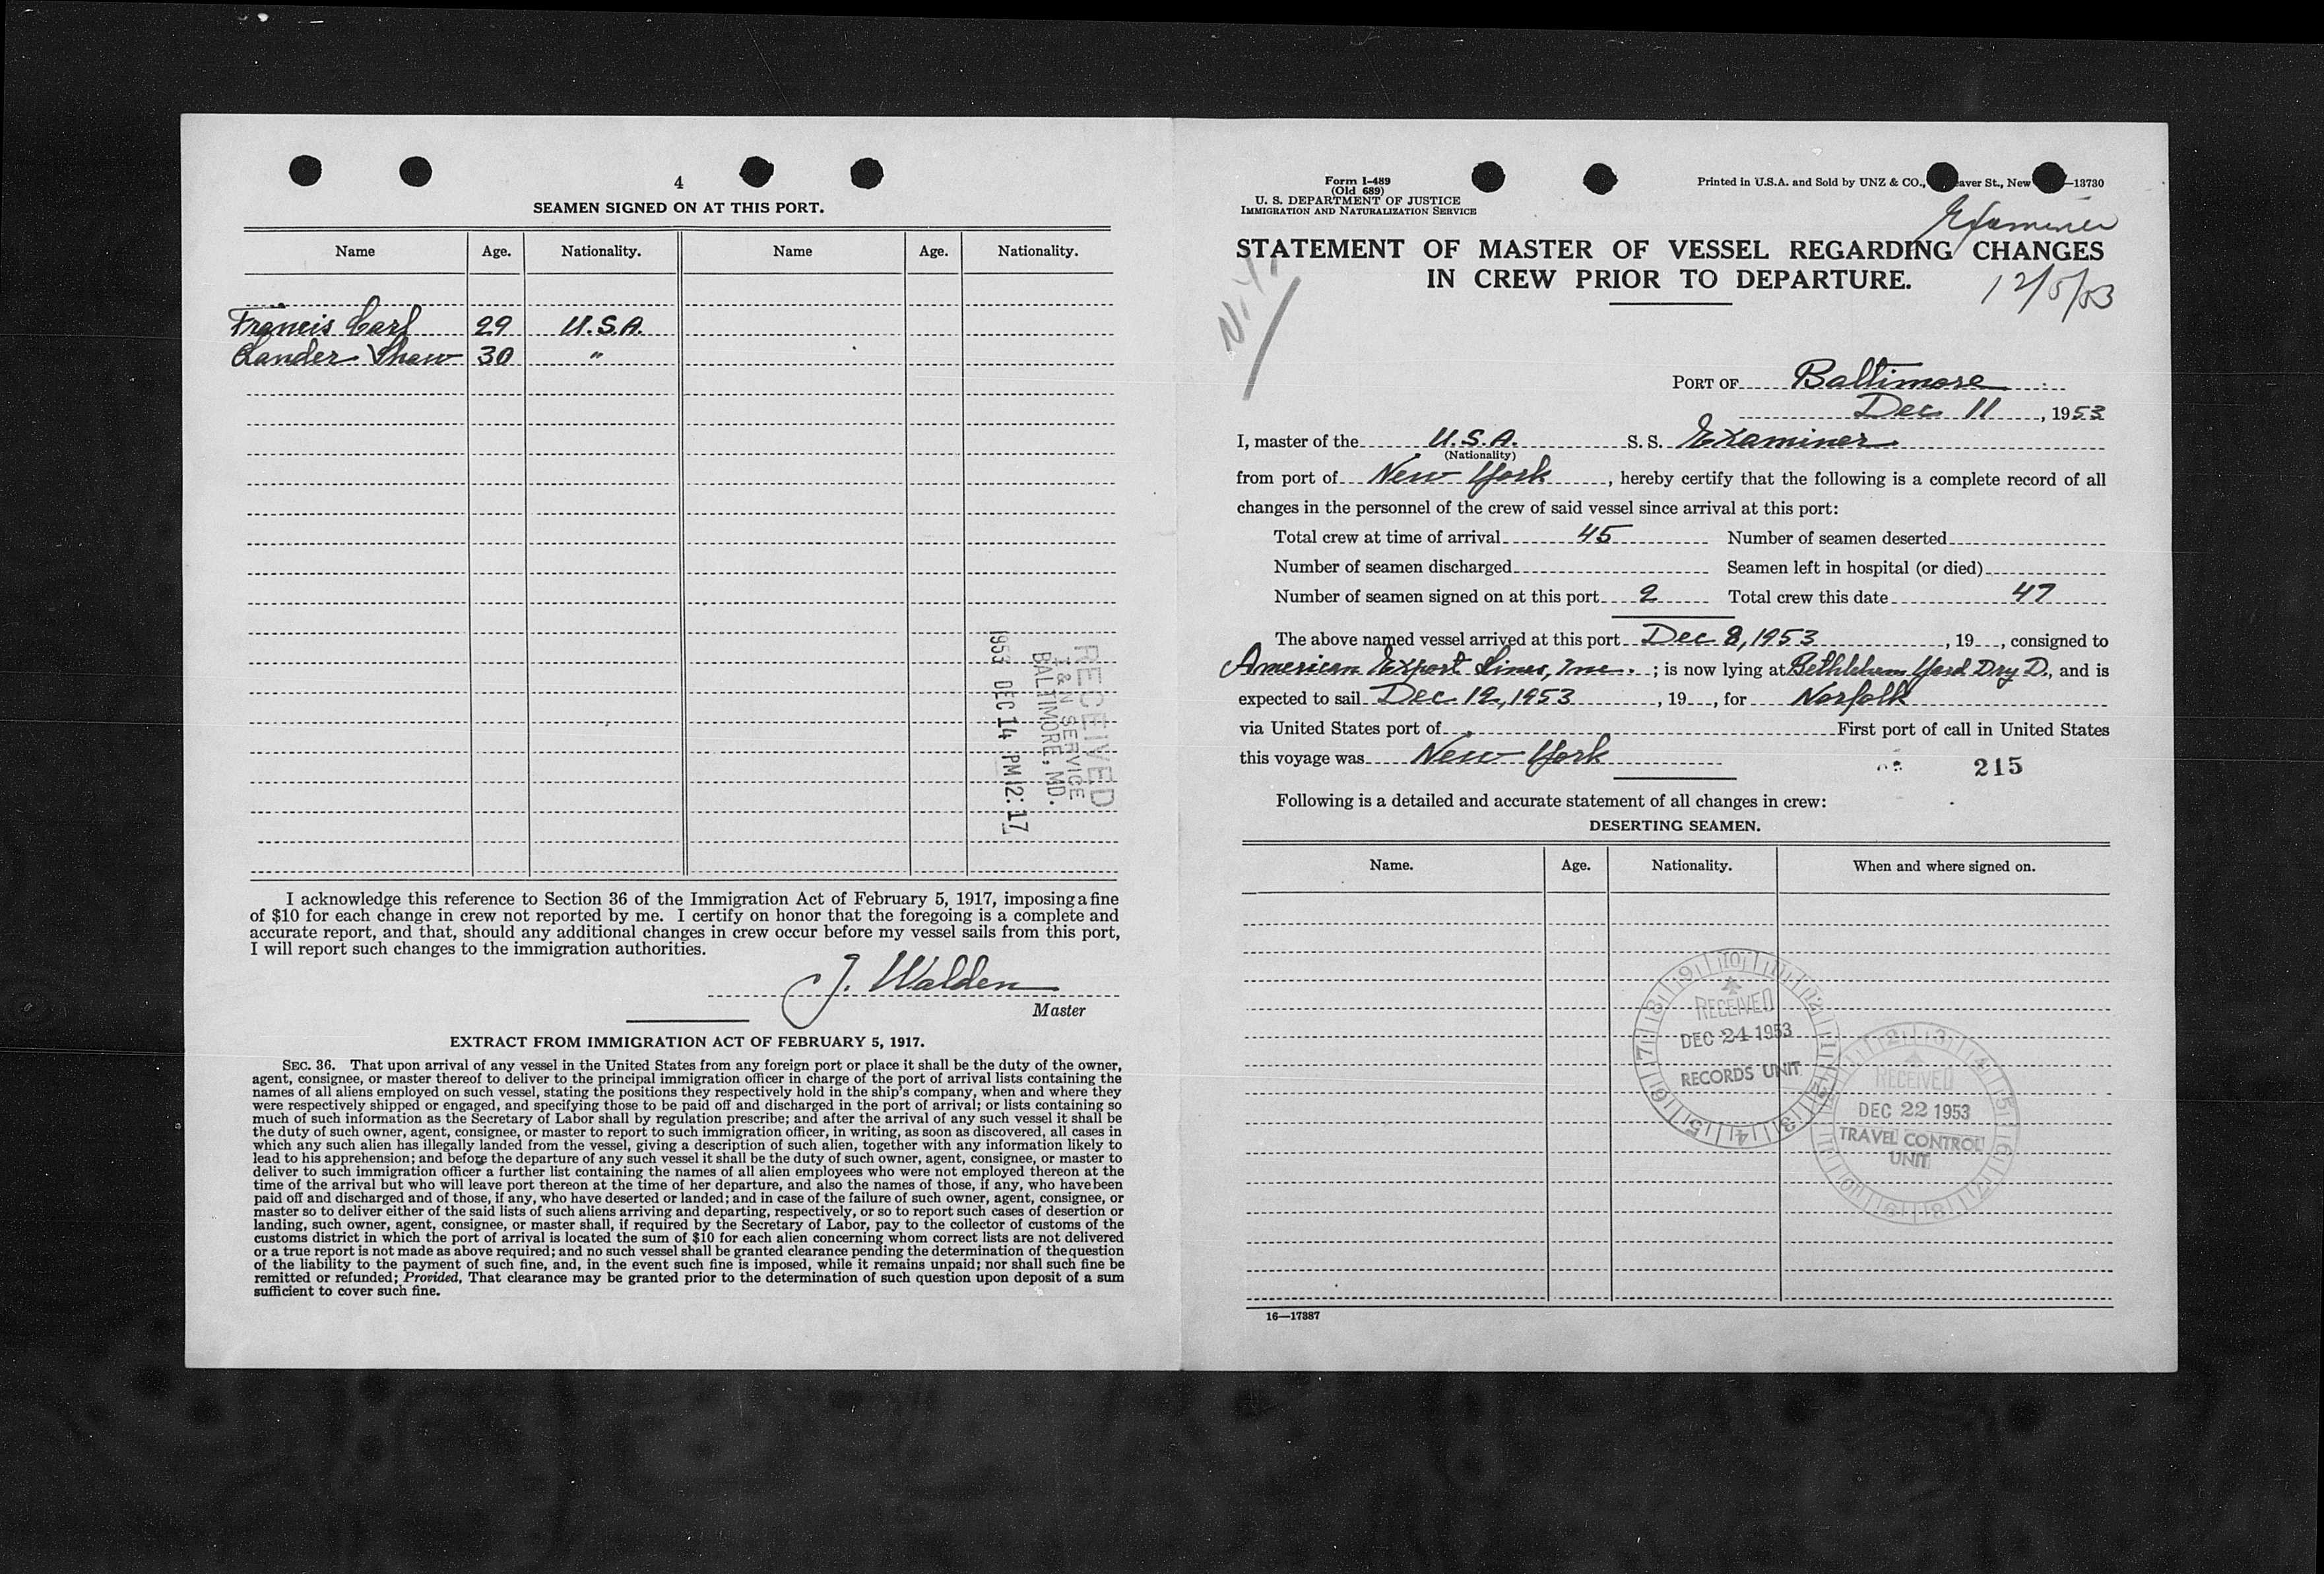 4
SEAMEN SIGNED ON AT THIS PORT.
Name Age. Nationality. Name Age. Nationality.
Francis Carl 29 U.S.A.
Lander Shaw 30 "
RECEIVED
I & N SERVICE
BALTIMORE, MD.
1953 DEC 14 PM 12:17
I acknowledge this reference to Section 36 of the Immigration Act of February 5, 1917, imposing a fine
of $10 for each change in crew not reported by me. I certify on honor that the foregoing is a complete and
accurate report, and that, should any additional changes in crew occur before my vessel sails from this port,
I will report such changes to the immigration authorities.
J. Walden
Master
EXTRACT FROM IMMIGRATION ACT OF FEBRUARY 5, 1917.
SEC. 36. That upon arrival of any vessel in the United States from any foreign port or place it shall be the duty of the owner,
agent, consignee, or master thereof to deliver to the principal immigration officer in charge of the port of arrival lists containing the
names of all aliens employed on such vessel, stating the positions they respectively hold in the ship's company, when and where they
were respectively shipped or engaged, and specifying those to be paid off and discharged in the port of arrival; or lists containing so
much of such information as the Secretary of Labor shall by regulation prescribe; and after the arrival of any such vessel it shall be
the duty of such owner, agent, consignee, or master to report to such immigration officer, in writing, as soon as discovered, all cases in
which any such alien has illegally landed from the vessel, giving a description of such alien, together with any information likely to
lead to his apprehension; and before the departure of any such vessel it shall be the duty of such owner, agent, consignee, or master to
deliver to such immigration officer a further list containing the names of all alien employees who were not employed thereon at the
time of the arrival but who will leave port thereon at the time of her departure, and also the names of those, if any, who have been
paid off and discharged and of those, if any, who have deserted or landed; and in case of the failure of such owner, agent, consignee, or
master so to deliver either of the said lists of such aliens arriving and departing, respectively, or so to report such cases of desertion or
landing, such owner, agent, consignee, or master shall, if required by the Secretary of Labor, pay to the collector of customs of the
customs district in which the port of arrival is located the sum of $10 for each alien concerning whom correct lists are not delivered
or a true report is not made as above required; and no such vessel shall be granted clearance pending the determination of the question
of the liability to the payment of such fine, and, in the event such fine is imposed, while it remains unpaid; nor shall such fine be
remitted or refunded; Provided, That clearance may be granted prior to the determination of such question upon deposit of a sum
sufficient to cover such fine.
Form I-489
(Old 689)
U. S. DEPARTMENT OF JUSTICE
IMMIGRATION AND NATURALIZATION SERVICE
Printed in U.S.A. and Sold by UNZ & CO., eaver St., New —13730
Examiner
12/5/53
N.Y.
STATEMENT OF MASTER OF VESSEL REGARDING CHANGES
IN CREW PRIOR TO DEPARTURE.
PORT OF Baltimore
Dec 11, 1953
I, master of the U.S.A. S. S. Examiner
(Nationality)
from port of New York, hereby certify that the following is a complete record of all
changes in the personnel of the crew of said vessel since arrival at this port:
Total crew at time of arrival 45 Number of seamen deserted
Number of seamen discharged Seamen left in hospital (or died)
Number of seamen signed on at this port 2 Total crew this date 47
The above named vessel arrived at this port Dec 8, 1953, 19, consigned to
American Export Lines, Inc.; is now lying at Bethlehem Yard Dry D., and is
expected to sail Dec 12, 1953, 19, for Norfolk
via United States port of First port of call in United States
this voyage was New York
215
Following is a detailed and accurate statement of all changes in crew:
DESERTING SEAMEN.
Name. Age. Nationality. When and where signed on.
RECEIVED
DEC 24 1953
RECORDS UNIT
RECEIVED
DEC 22 1953
TRAVEL CONTROL
UNIT
16—17387